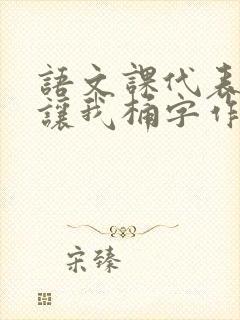 語文課代表
讓我桶字作
宋臻